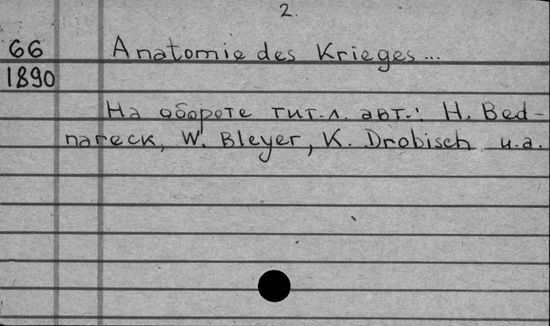 2.
66 Anatomie des Krieges...
1890
На обороте тит.л. авт.: H. Bed-
nareck, W. Bleyer, K. Drobisch u.a.